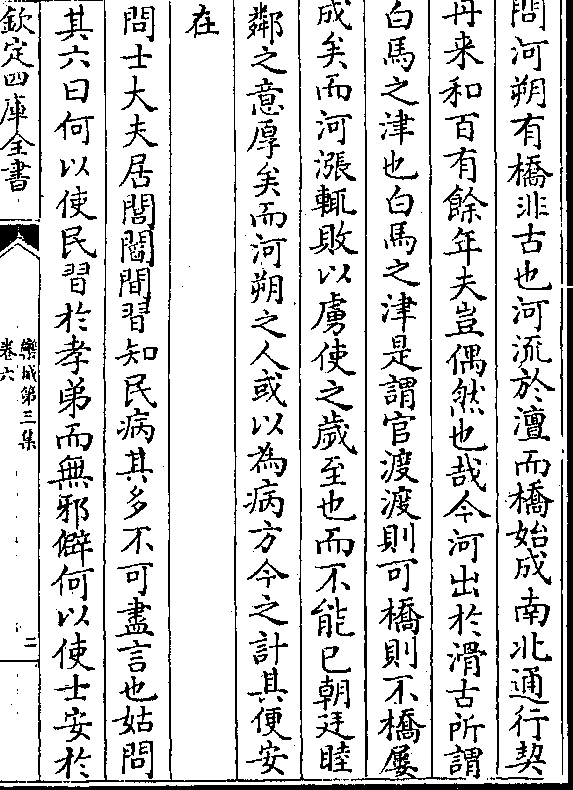 問河朔有橋非古也河流於澶而橋始成南北通行契
丹来和百有餘年夫豈偶然也哉今河出於滑古所謂
白馬之津也白馬之津是謂官渡渡則可橋則不橋屢
成矣而河漲輒敗以虜使之歲至也而不能已朝廷睦
鄰之意厚矣而河朔之人或以為病方今之計其便安
在
問士大夫居閭閻間習知民病其多不可盡言也姑問
其六曰何以使民習於孝弟而無邪僻何以使士安於
欽定四庫全書
欒城第三集
卷六
三